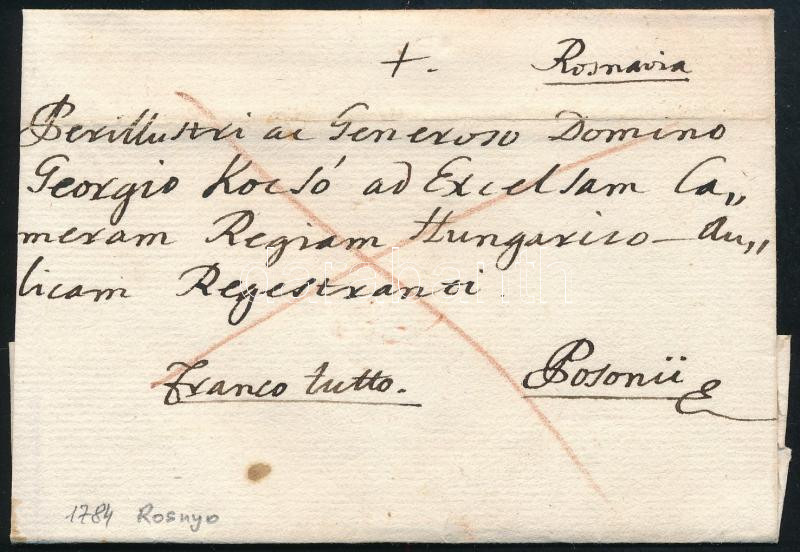 +. Rosnavia
Perillustri ac Generoso Domino
Georgio Kocsó ad Excelsam Ca„
meram Regiam Hungarico-Au„
licam Regestranti.
Franco tutto. Posonii
1784 Rosnyo